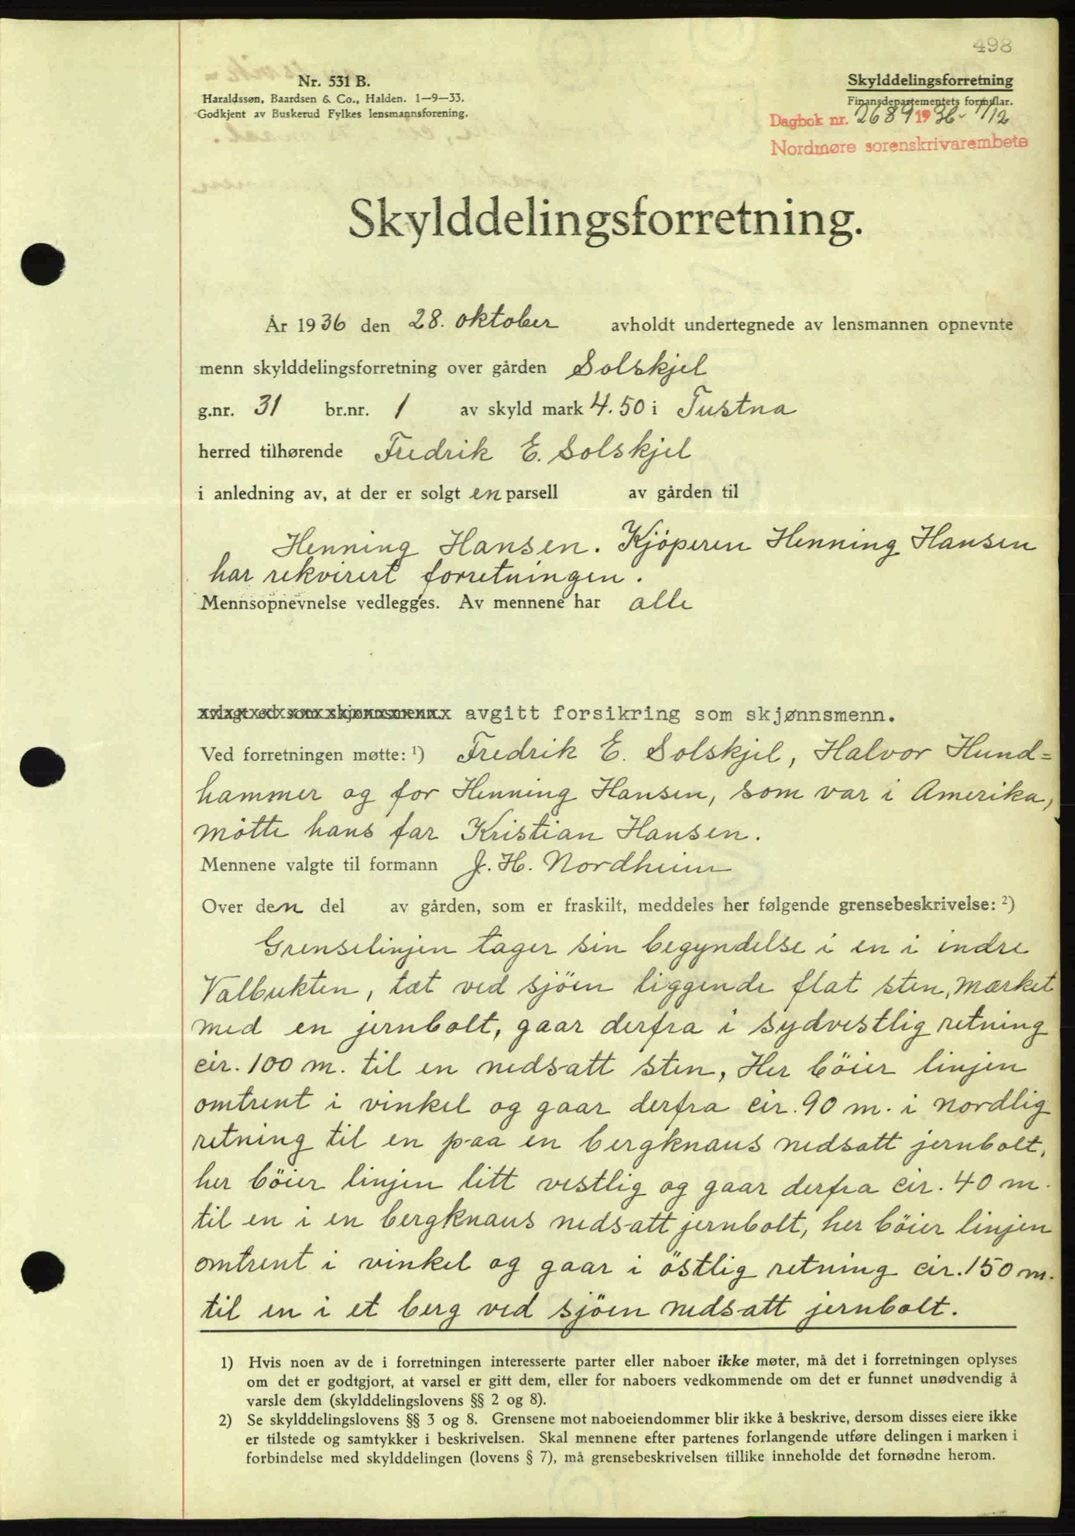 498
Nr. 531 B.
Haraldssøn, Baardsen & Co., Halden. 1—9—33.
Godkjent av Buskerud Fylkes lensmannsforening.
Skylddelingsforretning
Finansdepartementets formular.
Dagbok nr. 2689 1936 - 1/12
Nordmøre sorenskrivarembete
Skylddelingsforretning.
År 1936 den 28. oktober avholdt undertegnede av lensmannen opnevnte
menn skylddelingsforretning over gården Solskjel
g.nr. 31 br.nr. 1 av skyld mark 4.50 i Tustna
herred tilhørende Fredrik E. Solskjel
i anledning av, at der er solgt en parsell av gården til
Henning Hansen. Kjöperen Henning Hansen
har rekvirert forretningen.
Mennsopnevnelse vedlegges. Av mennene har alle
avgitt forsikring som skjønnsmenn.
Ved forretningen møtte: ¹) Fredrik E. Solskjel, Halvor Hund=
hammer og for Henning Hansen, som var i Amerika,
mötte hans far Kristian Hansen.
Mennene valgte til formann J. H. Nordheim
Over den del av gården, som er fraskilt, meddeles her følgende grensebeskrivelse: ²)
Grenselinjen tager sin begyndelse i en i indre
Valbukten, tæt ved sjöen liggende flat sten, mærket
med en jernbolt, gaar derfra i sydvestlig retning
cir. 100 m. til en nedsatt sten, Her böier linjen
omtrent i vinkel og gaar derfra cir. 90 m. i nordlig
retning til en paa en bergknaus nedsatt jernbolt,
her böier linjen litt vestlig og gaar derfra cir. 40 m.
til en i en bergknaus nedsatt jernbolt, her böier linjen
omtrent i vinkel og gaar i östlig retning cir. 150 m.
til en i et berg ved sjöen nedsatt jernbolt.
1) Hvis noen av de i forretningen interesserte parter eller naboer ikke møter, må det i forretningen oplyses
om det er godtgjort, at varsel er gitt dem, eller for naboers vedkommende om det er funnet unødvendig å
varsle dem (skylddelingslovens §§ 2 og 8).
2) Se skylddelingslovens §§ 3 og 8. Grensene mot naboeiendommer blir ikke å beskrive, dersom disses eiere ikke
er tilstede og samtykker i beskrivelsen. Skal mennene efter partenes forlangende utføre delingen i marken i
forbindelse med skylddelingen (lovens § 7), må grensebeskrivelsen tillike inneholde det fornødne herom.